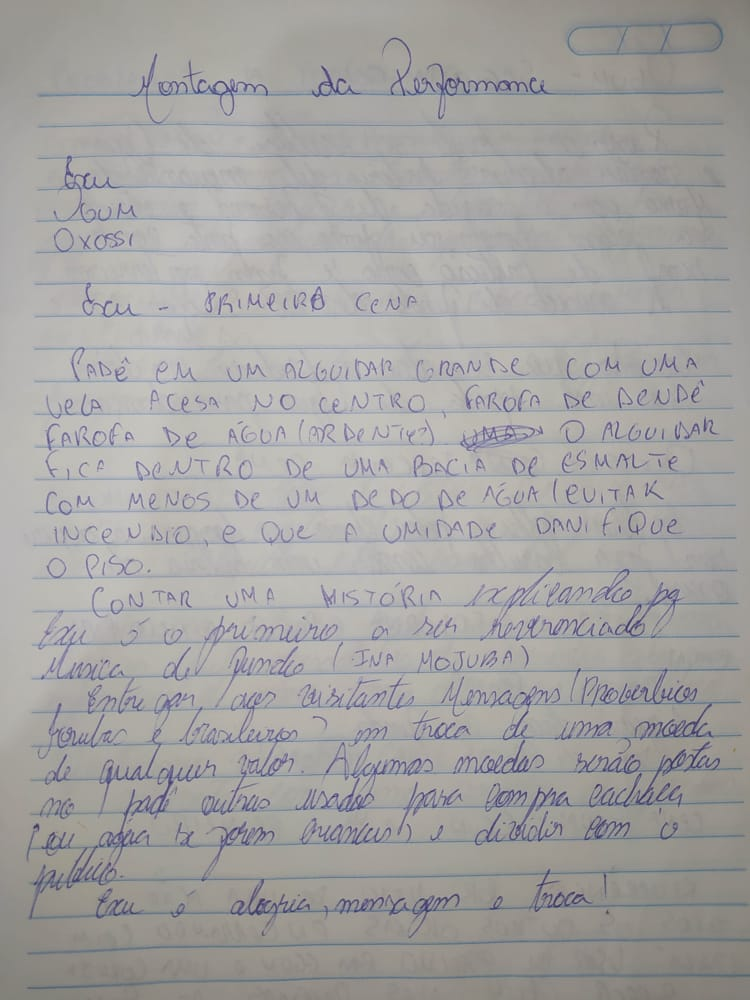 Montagem da Performance
Exu
OGUM
OXOSSI
Exu - PRIMEIRA CENA
PADÊ EM UM ALGUIDAR GRANDE COM UMA
VELA ACESA NO CENTRO, FAROFA DE DENDÊ
FAROFA DE ÁGUA (ARDENTE?) O ALGUIDAR
FICA DENTRO DE UMA BACIA DE ESMALTE
COM MENOS DE UM DEDO DE AGUA (EVITAR
INCENDIO, E QUE A UMIDADE DANIFIQUE
O PISO.
CONTAR UMA HISTÓRIA explicando pq
Exu é o primeiro a ser reverenciado
Musica de fundo (INA MOJUBA)
Entregar aos visitantes Mensagens (Proverbios
Iorubas e brasileiros) em troca de uma moeda
de qualquer valor. Algumas moedas serão postas
no padê outras usadas para compra cachaça
(ou agua se forem crianças) e dividir com o
publico.
Exu é alegria, mensagem e troca!